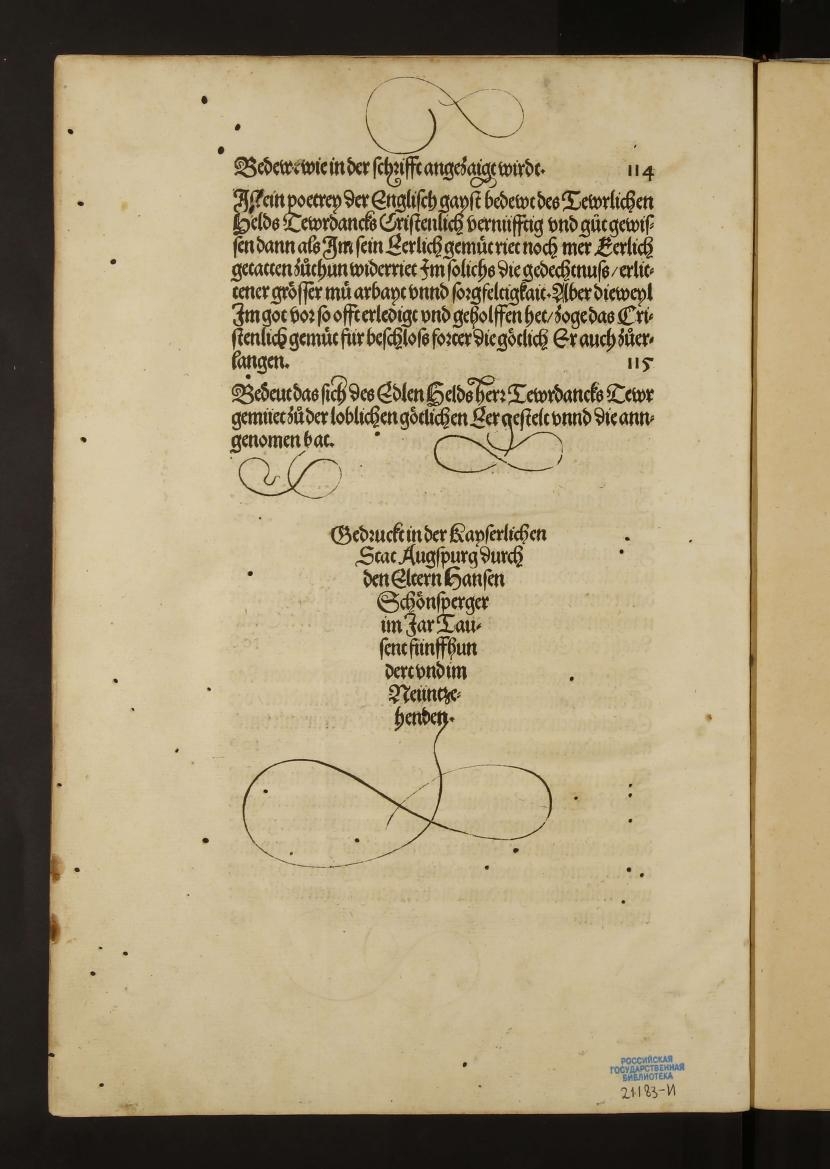 Bedewt wie in der schrifft angezaigt wirdt. 114
Ist ein poetrey der Englisch gayst bedewt des Tewrlichen
Helds Tewrdancks Cristenlich vernüfftig vnd gůt gewis⸗
sen dann als Im sein Eerlich gemüt riet noch mer Eerlich
getatten zůthun widerriet Im solichs die gedechtnuß / erlit⸗
tener grösser mü arbayt vnnd sorgfeltigkait. Aber dieweyl
Im got vor so offt erledigt vnd geholffen het / zoge das Cri⸗
stenlich gemüt für beschloß forter die götlich Er auch zůer⸗
langen. 115
Bedeut das sich des Edlen Helds herr Tewrdancks Tewr
gemüet zů der loblichen götlichen Ler gestelt vnnd die ann⸗
genomen hat.
Gedruckt in der Kayserlichen
Stat Augspurg durch
den Eltern Hansen
Schönsperger
im Jar Tau⸗
sent fünffhun
dert vnd im
Neüntze⸗
henden.
РОССИЙСКАЯ
ГОСУДАРСТВЕННАЯ
БИБЛИОТЕКА
21183-И